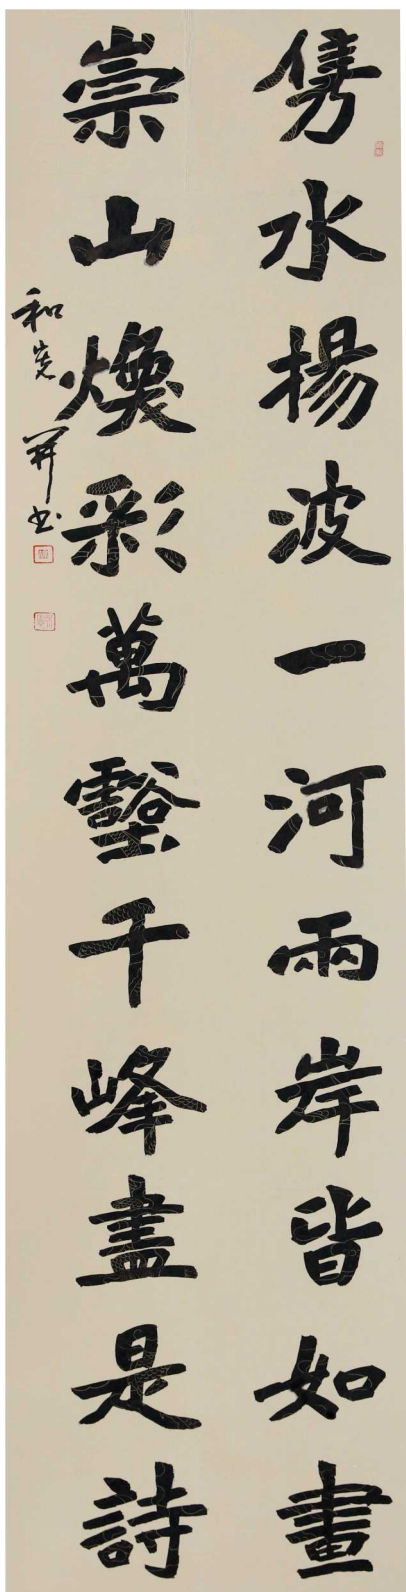 隽水揚波一河兩岸皆如畫
崇山煥彩萬壑千峰盡是詩
和 书